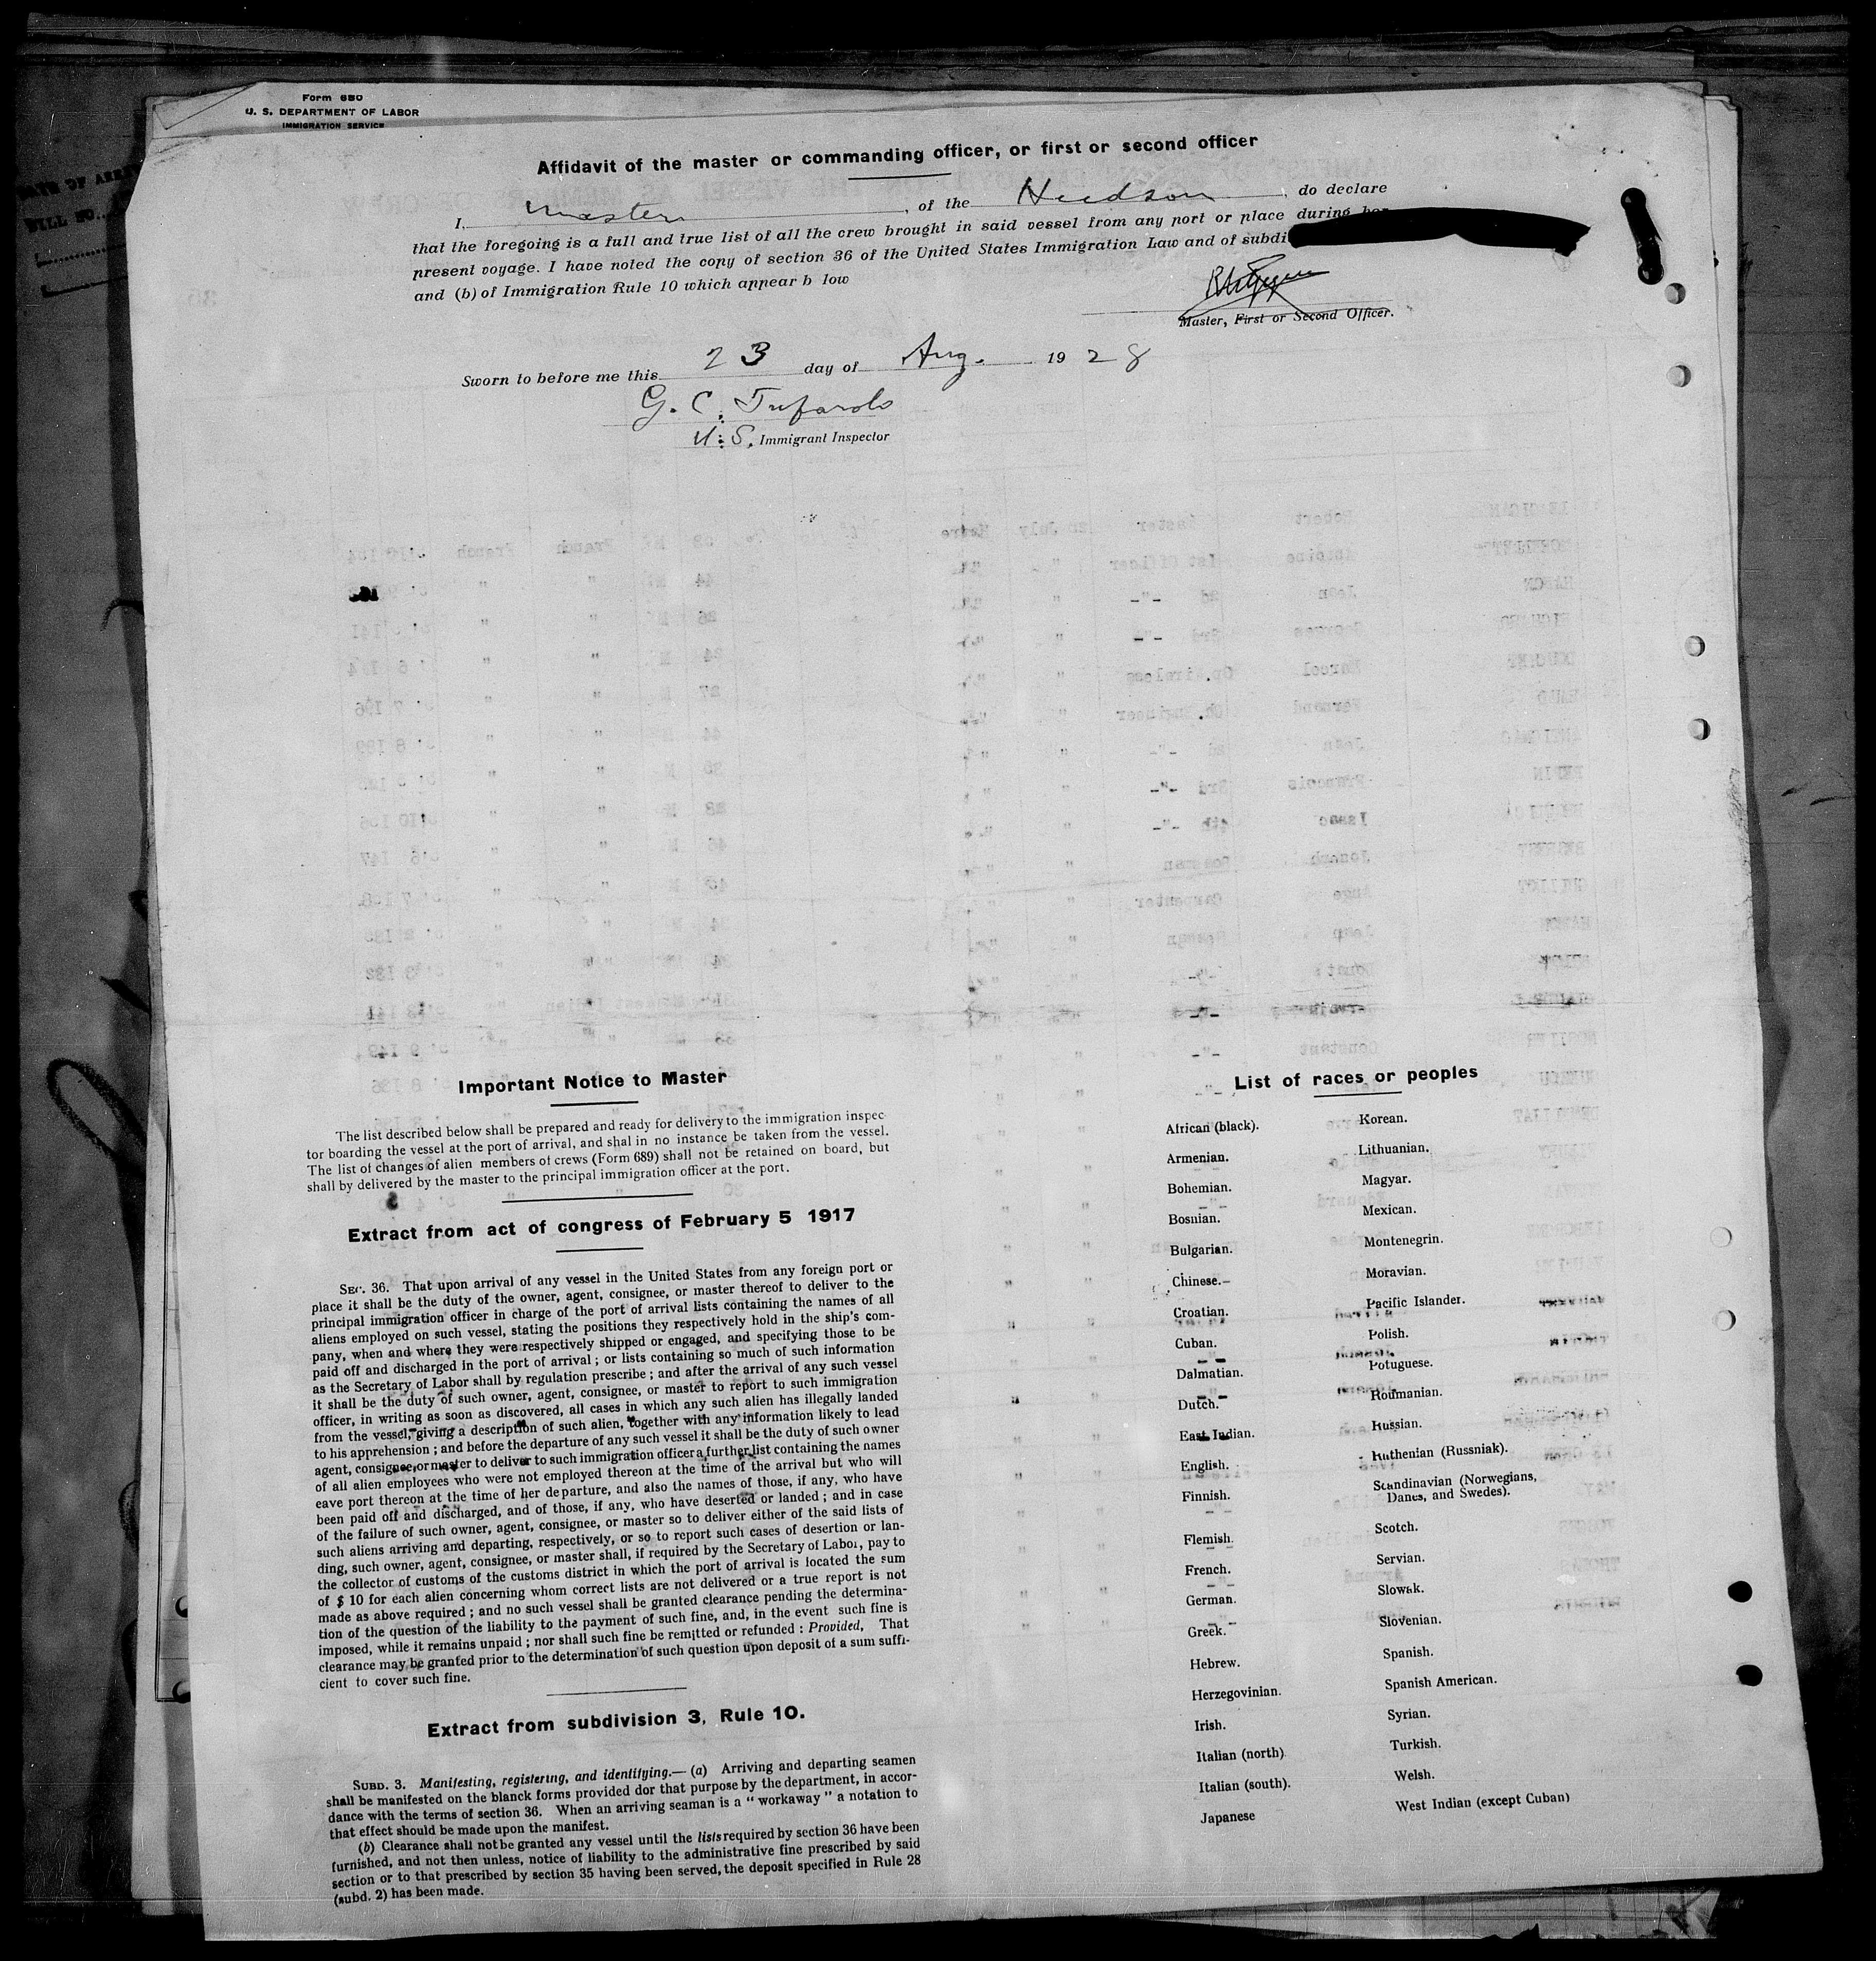 Form 680
U. S. DEPARTMENT OF LABOR
IMMIGRATION SERVICE
Affidavit of the master or commanding officer, or first or second officer
I, master, of the Hudson, do declare
that the foregoing is a full and true list of all the crew brought in said vessel from any port or place during her
present voyage. I have noted the copy of section 36 of the United States Immigration Law and of subdi
and (b) of Immigration Rule 10 which appear b low
Master, First or Second Officer.
Sworn to before me this 23 day of Aug. 1928
G. C. Tufarolo
U. S. Immigrant Inspector
Important Notice to Master
The list described below shall be prepared and ready for delivery to the immigration inspec-
tor boarding the vessel at the port of arrival, and shal in no instance be taken from the vessel.
The list of changes of alien members of crews (Form 689) shall not be retained on board, but
shall by delivered by the master to the principal immigration officer at the port.
Extract from act of congress of February 5 1917
SEC. 36. That upon arrival of any vessel in the United States from any foreign port or
place it shall be the duty of the owner, agent, consignee, or master thereof to deliver to the
principal immigration officer in charge of the port of arrival lists containing the names of all
aliens employed on such vessel, stating the positions they respectively hold in the ship's com-
pany, when and where they were respectively shipped or engaged, and specifying those to be
paid off and discharged in the port of arrival ; or lists containing so much of such information
as the Secretary of Labor shall by regulation prescribe ; and after the arrival of any such vessel
it shall be the duty of such owner, agent, consignee, or master to report to such immigration
officer, in writing as soon as discovered, all cases in which any such alien has illegally landed
from the vessel, giving a description of such alien, together with any information likely to lead
to his apprehension ; and before the departure of any such vessel it shall be the duty of such owner
agent, consignee, or master to deliver to such immigration officer a further list containing the names
of all alien employees who were not employed thereon at the time of the arrival but who will
eave port thereon at the time of her departure, and also the names of those, if any, who have
been paid off and discharged, and of those, if any, who have deserted or landed ; and in case
of the failure of such owner, agent, consignee, or master so to deliver either of the said lists of
such aliens arriving and departing, respectively, or so to report such cases of desertion or lan-
ding, such owner, agent, consignee, or master shall, if required by the Secretary of Labor, pay to
the collector of customs of the customs district in which the port of arrival is located the sum
of $ 10 for each alien concerning whom correct lists are not delivered or a true report is not
made as above required ; and no such vessel shall be granted clearance pending the determina-
tion of the question of the liability to the payment of such fine, and, in the event such fine is
imposed, while it remains unpaid ; nor shall such fine be remitted or refunded : Provided, That
clearance may be granted prior to the determination of such question upon deposit of a sum suffi-
cient to cover such fine.
Extract from subdivision 3, Rule 10.
SUBD. 3. Manifesting, registering, and identifying.— (a) Arriving and departing seamen
shall be manifested on the blanck forms provided dor that purpose by the department, in accor-
dance with the terms of section 36. When an arriving seaman is a " workaway " a notation to
that effect should be made upon the manifest.
(b) Clearance shall not be granted any vessel until the lists required by section 36 have been
furnished, and not then unless, notice of liability to the administrative fine prescribed by said
section or to that prescribed by section 35 having been served, the deposit specified in Rule 28
(subd. 2) has been made.
List of races or peoples
African (black).
Armenian.
Bohemian.
Bosnian.
Bulgarian.
Chinese.
Croatian.
Cuban.
Dalmatian.
Dutch.
East Indian.
English.
Finnish.
Flemish.
French.
German.
Greek.
Hebrew.
Herzegovinian.
Irish.
Italian (north)
Italian (south).
Japanese
Korean.
Lithuanian.
Magyar.
Mexican.
Montenegrin.
Moravian.
Pacific Islander.
Polish.
Potuguese.
Roumanian.
Russian.
Ruthenian (Russniak).
Scandinavian (Norwegians,
Danes, and Swedes).
Scotch.
Servian.
Slowak.
Slovenian.
Spanish.
Spanish American.
Syrian.
Turkish.
Welsh.
West Indian (except Cuban)